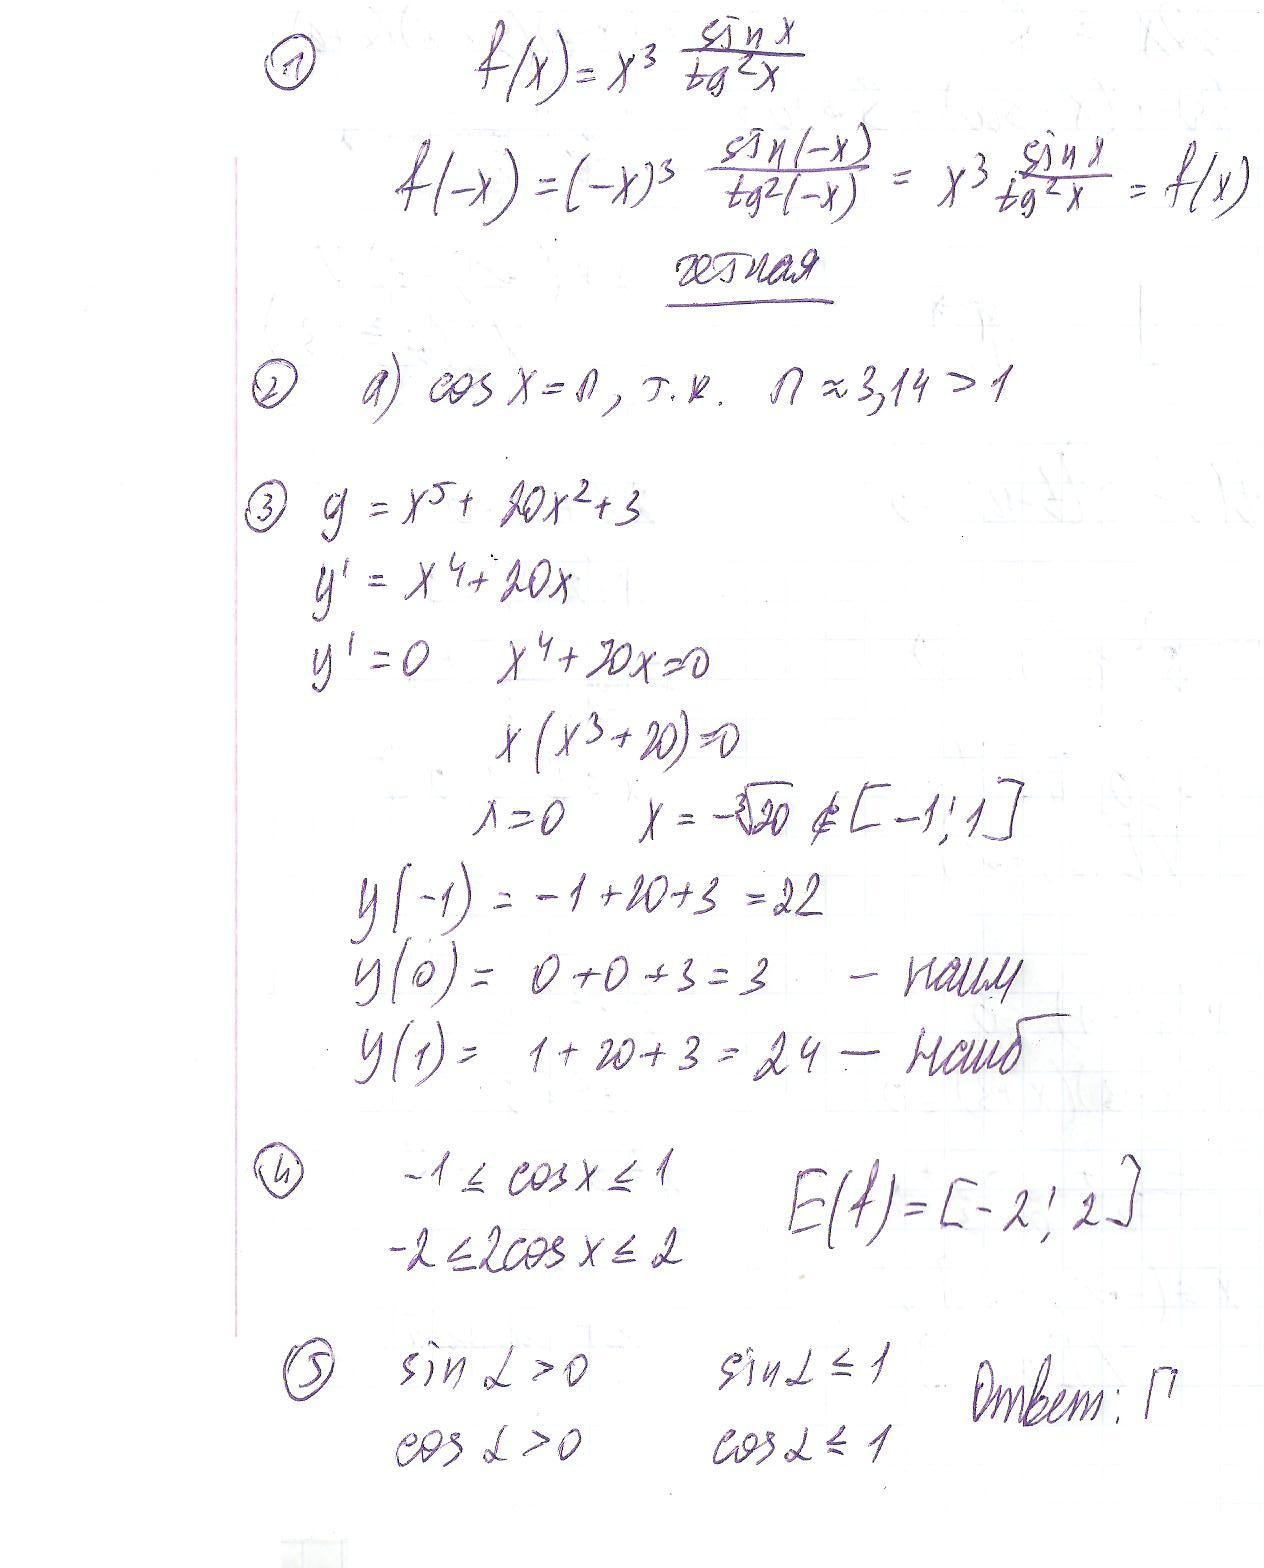 ① f(x) = x³ sin x / tg² x
f(-x) = (-x)³ sin(-x) / tg²(-x) = x³ sin x / tg² x = f(x)
четная
② а) cos x = π, т.к. π ≈ 3,14 > 1
③ y = x⁵ + 20x² + 3
y' = x⁴ + 20x
y' = 0 x⁴ + 20x = 0
x(x³ + 20) = 0
x = 0 x = -∛20 ∉ [-1; 1]
y(-1) = -1 + 20 + 3 = 22
y(0) = 0 + 0 + 3 = 3 - наим
y(1) = 1 + 20 + 3 = 24 - наиб
④ -1 ≤ cos x ≤ 1 E(f) = [-2; 2]
-2 ≤ 2cos x ≤ 2
⑤ sin α > 0 sin α ≤ 1 Ответ: Г
cos α > 0 cos α ≤ 1